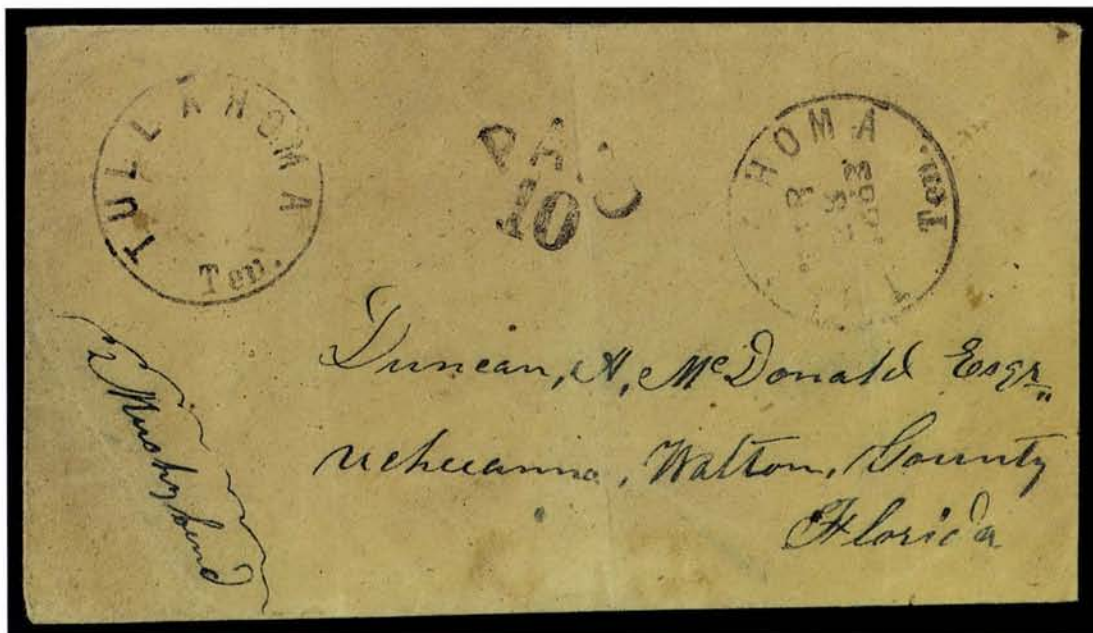 TULLAHOMA
Ten.
PAID
10
HOMA
Ten.
1863
Duncan, A, McDonald Esqr
ucheeanna, Walton, County
Florida